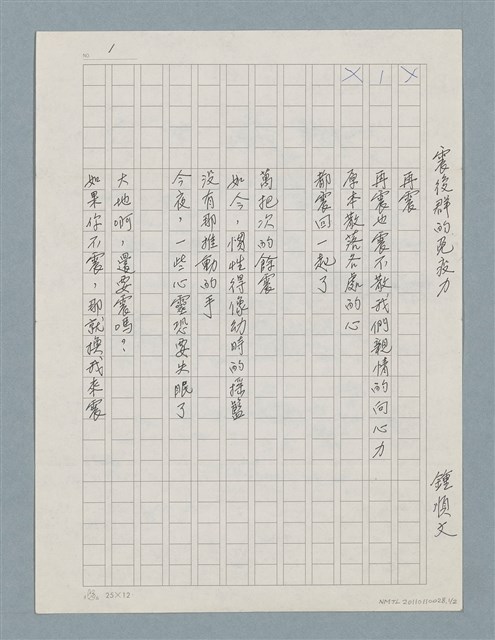 震後群的免疫力
鍾順文
再震
再震也震不散我們親情的向心力
原本散落各處的心
都震回一起了
萬把次的餘震
如今,慣性得像幼時的搖籃
沒有那推動的手
今夜,一些心靈恐要失眠了
大地啊,還要震嗎?
如果你不震,那就換我來震
NO. 1
25×12